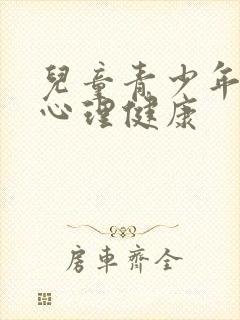 兒童青少年
心理健康
房車齊全